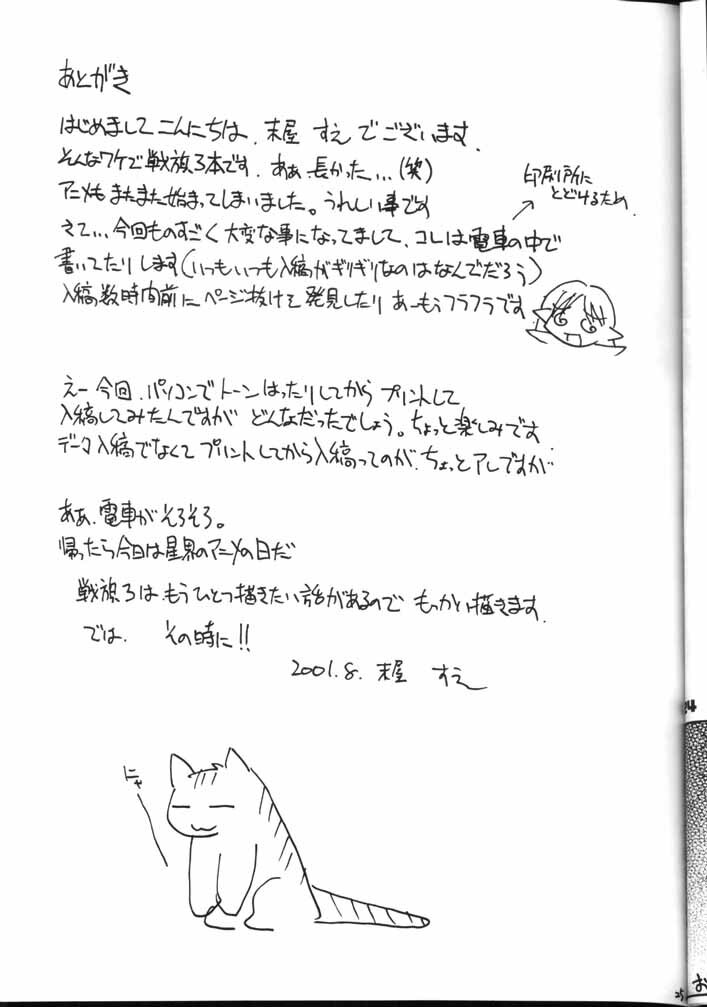 あとがき
はじめまして こんにちは、末屋 すえ でございます。
そんなワケで戦旗3本です。あぁ、長かった…(笑)
アニメもまたまた始まってしまいました。うれしい事です
さて…今回ものすごく大変な事になってまして、コレは電車の中で
書いてたりします(いつもいつも入稿がギリギリなのはなんでだろう)
入稿数時間前にページ抜けを発見したり あーもうフラフラです
印刷所に
とどけるため。
えー 今回、パソコンでトーンはったりしてから プリントして
入稿してみたんですが どんなだったでしょう。ちょっと楽しみです
データ入稿でなくて プリントしてから入稿ってのが、ちょっとアレですが
ああ、電車がそろそろ。
帰ったら今日は星界のアニメの日だ
戦旗3は、もうひとつ描きたい話があるので もっかい描きます。
では、 その時に!!
2001.8. 末屋 すえ
にゃ
25